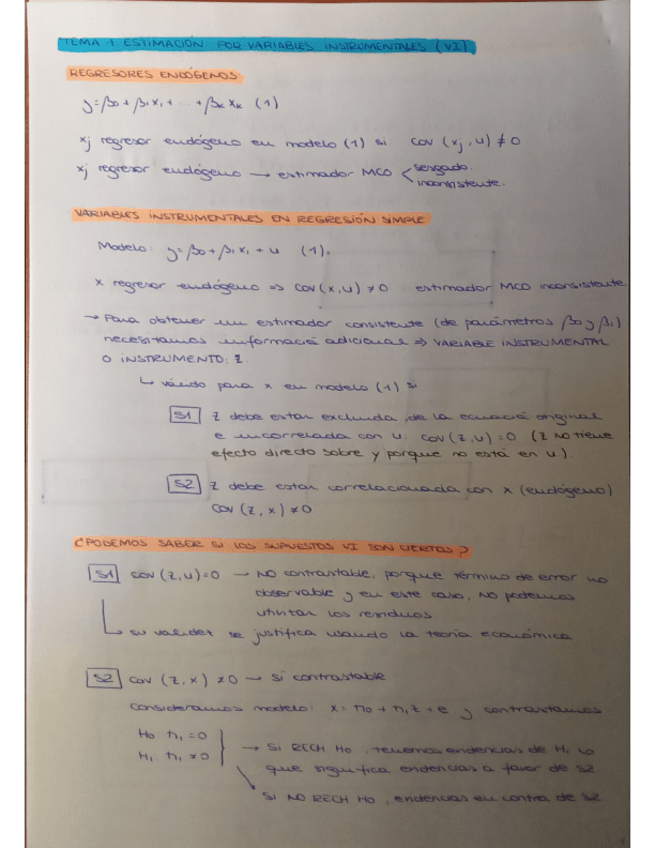 TEMA 1 ESTIMACIÓN POR VARIABLES INSTRUMENTALES (VI)
REGRESORES ENDÓGENOS
y = β0 + β1x1 + ... + βkxk (1)
xj regresor endógeno en modelo (1) si cov (xj, u) ≠ 0
xj regresor endógeno → estimador MCO < sesgado.
inconsistente.
VARIABLES INSTRUMENTALES EN REGRESIÓN SIMPLE
Modelo: y = β0 + β1x1 + u (1).
x regresor endógeno => cov(x,u) ≠ 0 estimador MCO inconsistente.
→ Para obtener un estimador consistente (de parámetros β0 y β1)
necesitamos información adicional => VARIABLE INSTRUMENTAL
O INSTRUMENTO: Z.
↳ válido para x en modelo (1) si
S1 Z debe estar excluida de la ecuación original
e incorrelada con u. cov(z,u)=0 (Z NO tiene
efecto directo sobre y porque no está en u).
S2 Z debe estar correlacionada con x (endógeno)
cov (z, x) ≠ 0
¿PODEMOS SABER SI LOS SUPUESTOS VI SON CIERTOS?
S1 cov (z,u)=0 → NO contrastable, porque término de error no
observable y en este caso, NO podemos
utilizar los residuos.
↳ su validez se justifica usando la teoría económica
S2 cov (z, x) ≠ 0 → Sí contrastable
Consideramos modelo: x = π0 + π1z + e y contrastamos
H0 π1 = 0
H1 π1 ≠ 0 } → Si RECH H0, tenemos evidencias de H1 lo
que significa evidencias a favor de S2
↘ Si NO RECH H0, evidencias en contra de S2